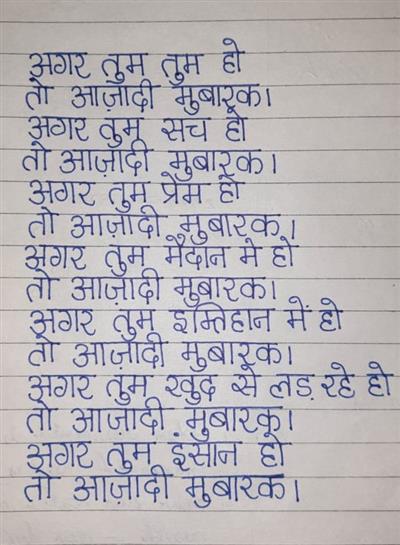 अगर तुम तुम हो
तो आज़ादी मुबारक।
अगर तुम सच हो
तो आज़ादी मुबारक।
अगर तुम प्रेम हो
तो आज़ादी मुबारक।
अगर तुम मैदान मे हो
तो आज़ादी मुबारक।
अगर तुम इम्तिहान में हो
तो आज़ादी मुबारक।
अगर तुम खुद से लड़ रहे हो
तो आज़ादी मुबारक।
अगर तुम इंसान हो
तो आज़ादी मुबारक।